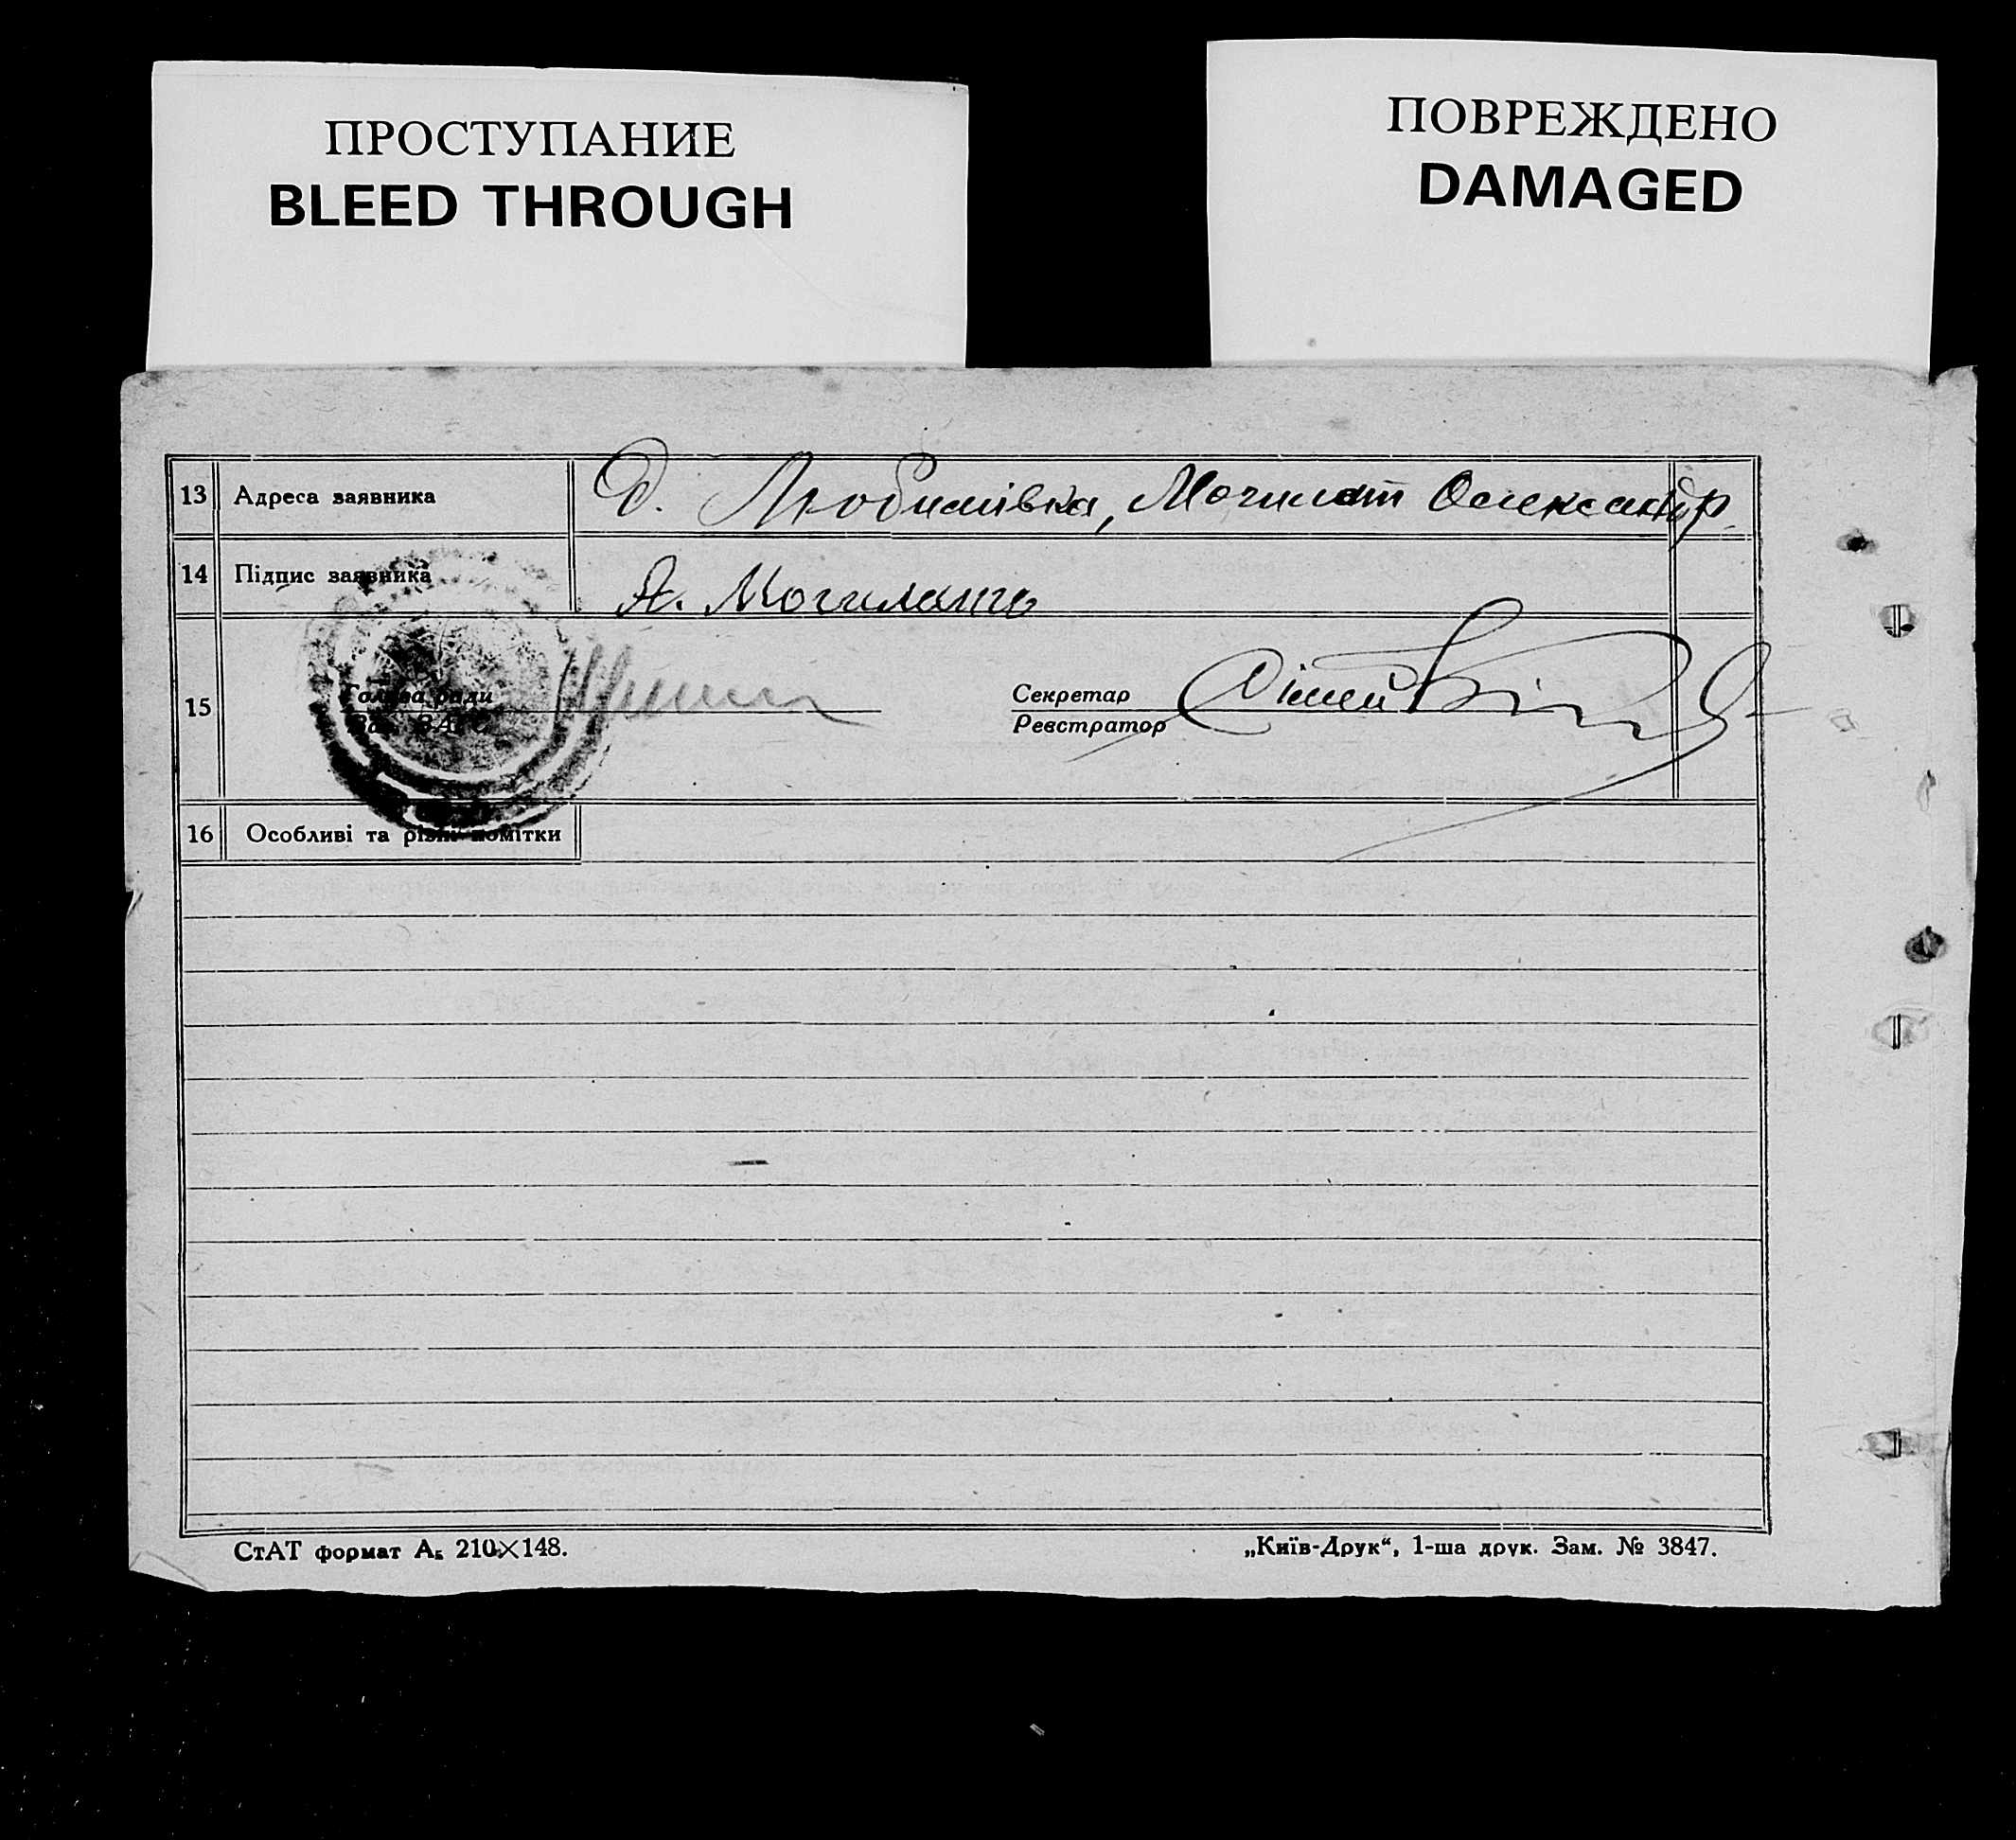 ПРОСТУПАНИЕ
BLEED THROUGH
ПОВРЕЖДЕНО
DAMAGED
13 Адреса заявника Любимівка, Могилат Олександр
14 Підпис заявника
15 Голова ради Секретар
Зав. ЗАГС Реєстратор
16 Особливі та різні помітки
СтАТ формат А₅ 210×148. „Київ-Друк“, 1-ша друк. Зам. № 3847.